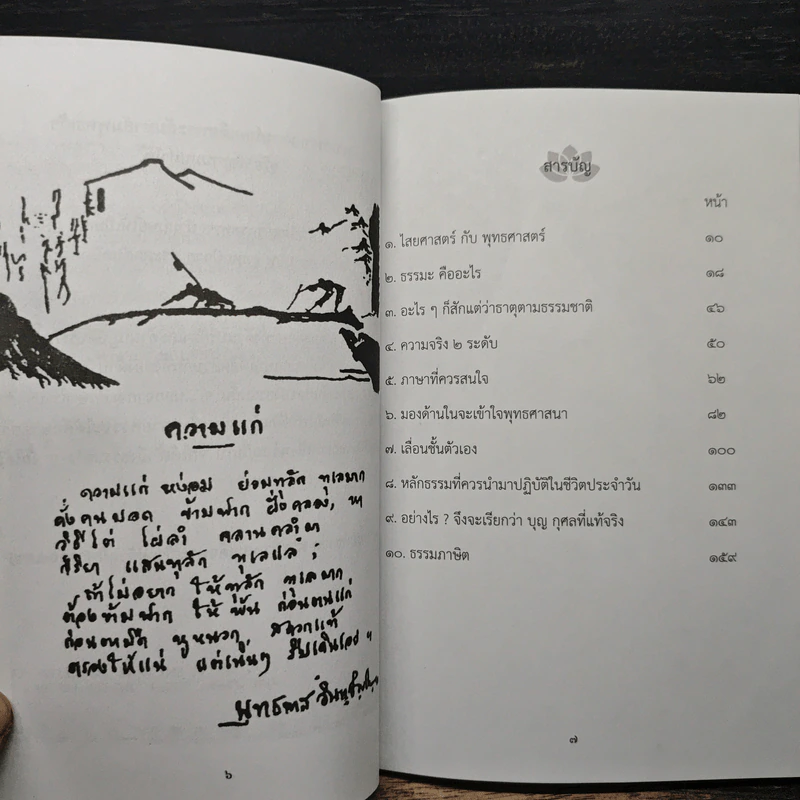 ความแก่
ความแก่ หง่อม ย่อมทุลัก ทุเลมาก
ดั่งคนบอด ข้ามฟาก ฝั่งคลอง, หา
วิธีไต่ ไผ่ลำ คลานคลำมา
กิริยา แสนทุลัก ทุเลแล ;
ถ้าไม่อยาก ให้ทุลัก ทุเลมาก
ต้องข้ามฟาก ให้ พ้น ก่อนตนแก่
ก่อนตามืด หูหนวก, สะดวกแท้
ตรองให้แน่ แต่เนิ่นๆ รีบเดินเอย ฯ
พุทธทาส อินทปัญโญ
๖
สารบัญ
หน้า
๑. ไสยศาสตร์ กับ พุทธศาสตร์ ๑๐
๒. ธรรมะ คืออะไร ๑๘
๓. อะไร ๆ ก็สักแต่ว่าธาตุตามธรรมชาติ ๔๖
๔. ความจริง ๒ ระดับ ๕๐
๕. ภาษาที่ควรสนใจ ๖๒
๖. มองด้านในจะเข้าใจพุทธศาสนา ๘๒
๗. เลื่อนชั้นตัวเอง ๑๐๐
๘. หลักธรรมที่ควรนำมาปฏิบัติในชีวิตประจำวัน ๑๓๓
๙. อย่างไร ? จึงจะเรียกว่า บุญ กุศลที่แท้จริง ๑๔๓
๑๐. ธรรมภาษิต ๑๕๙
๗